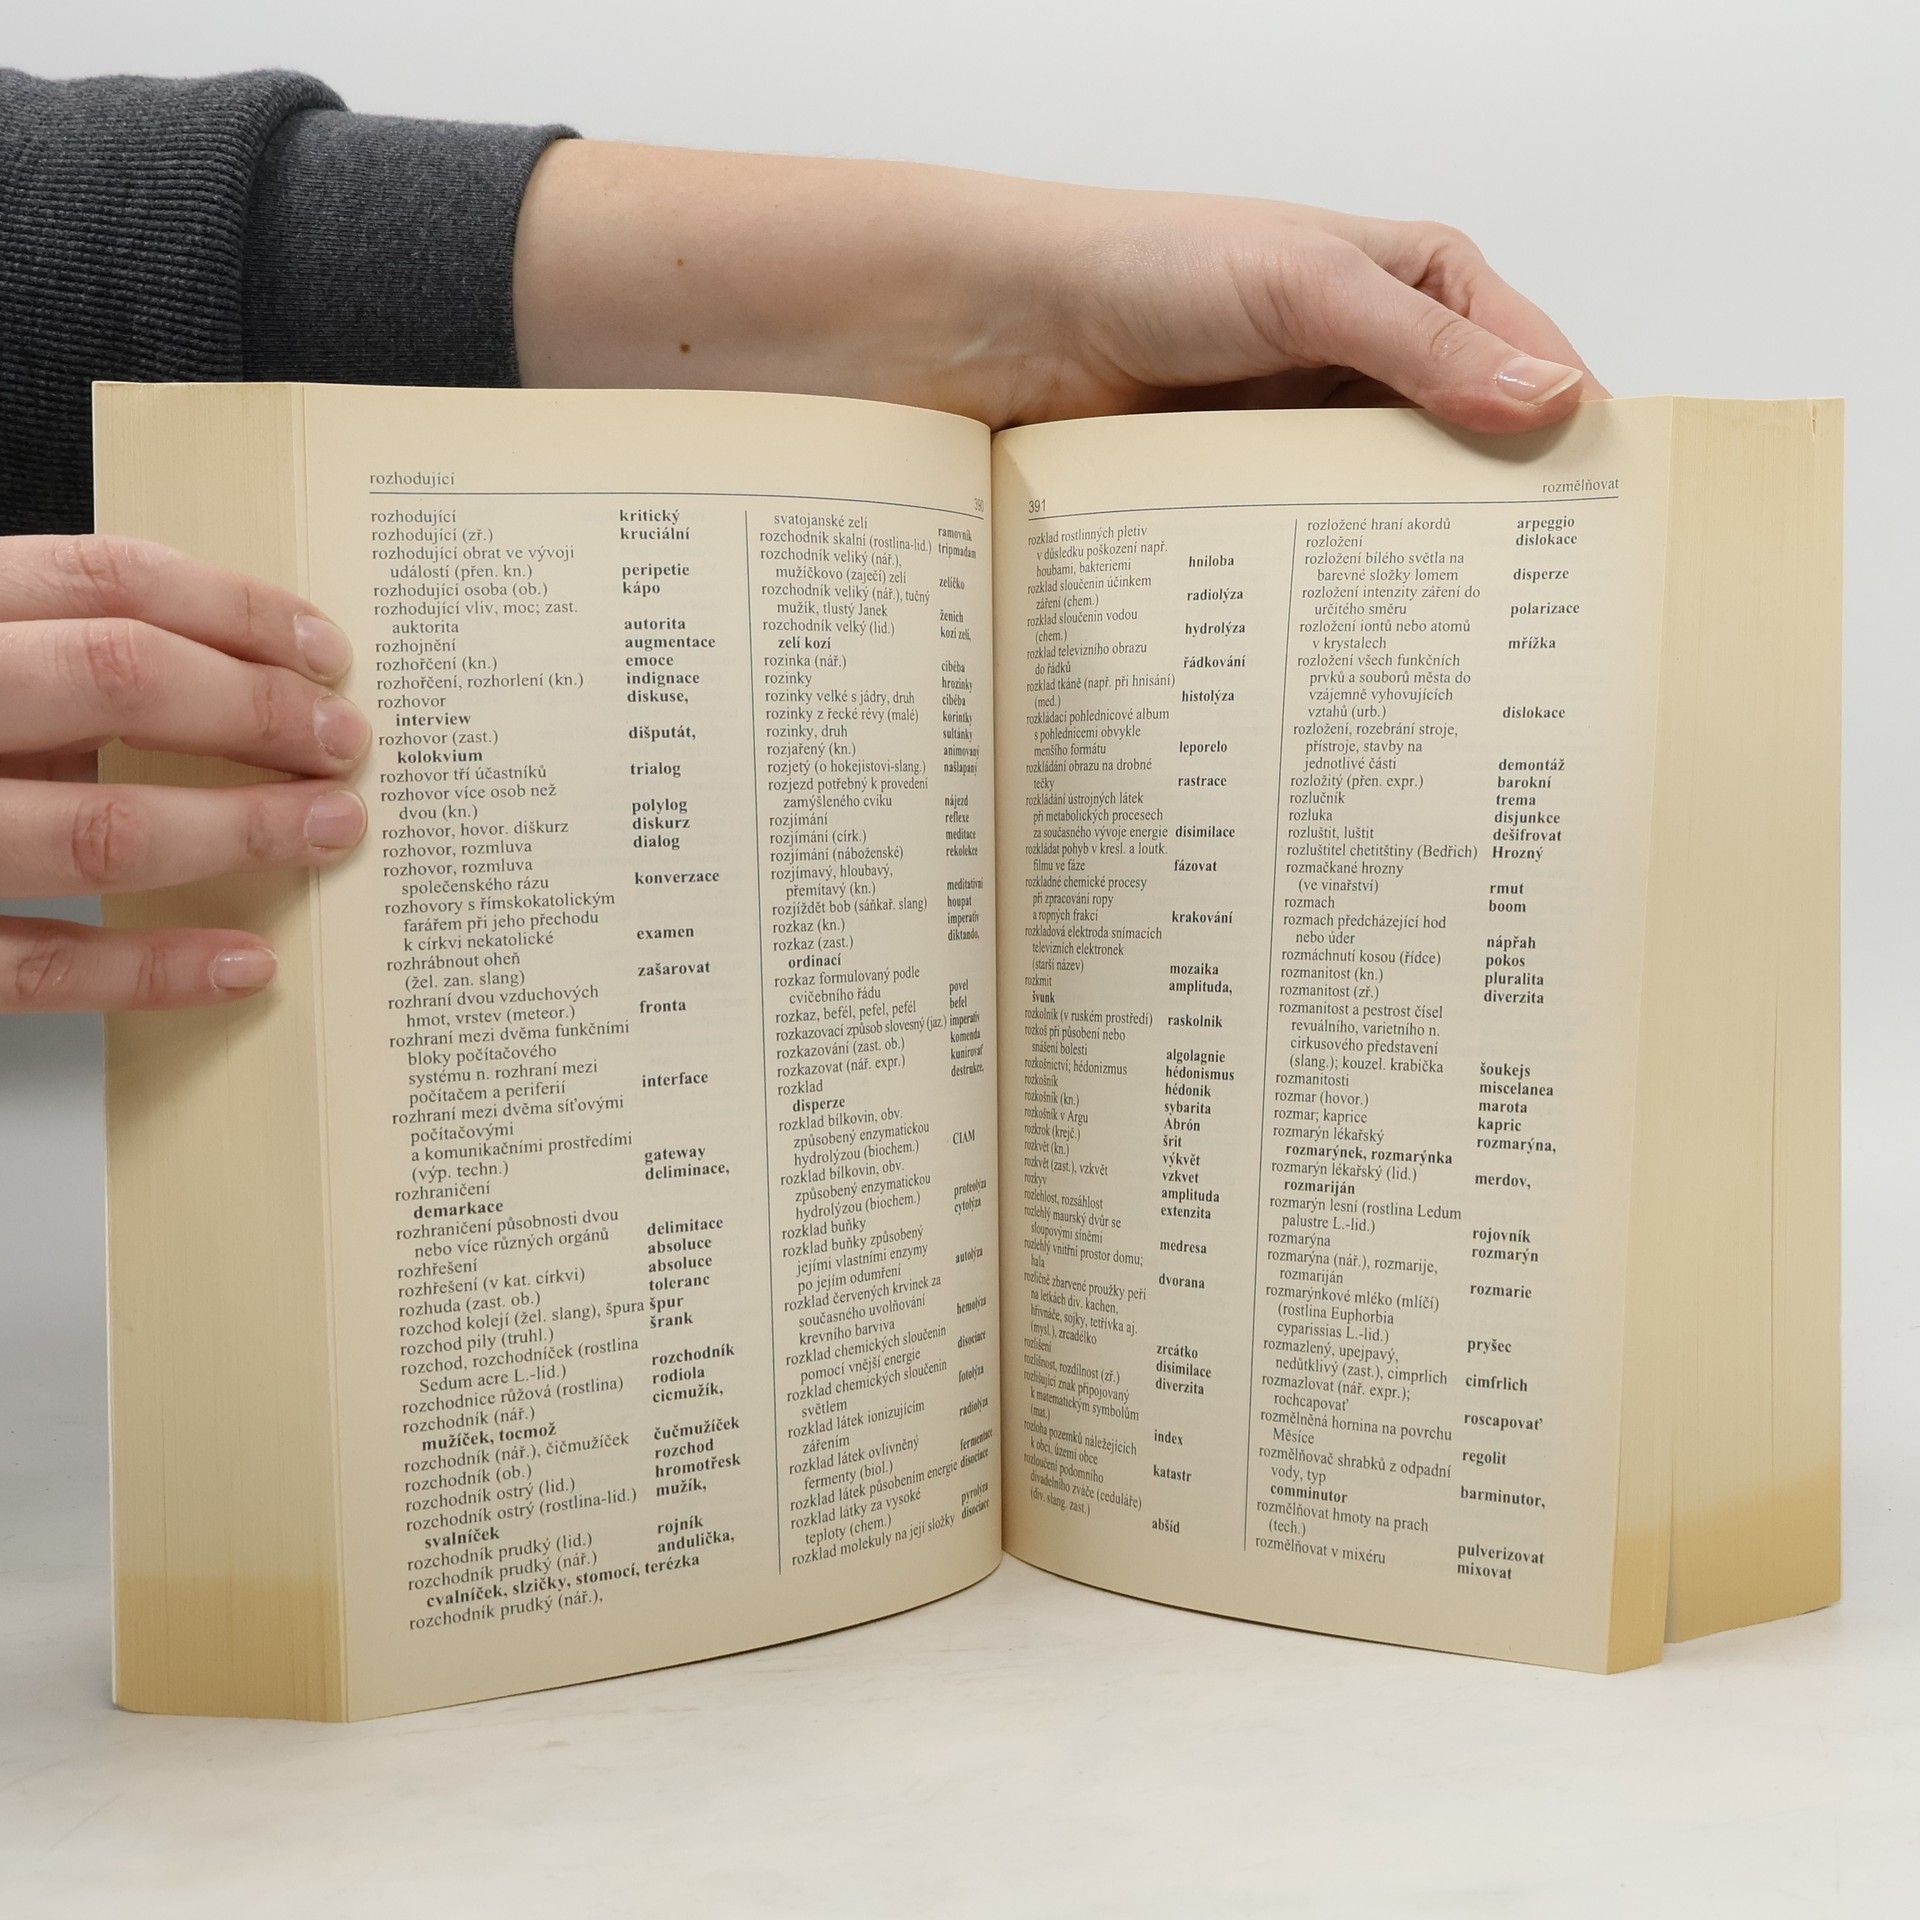 rozhodující
390
rozhodující kritický
rozhodující (zř.) kruciální
rozhodující obrat ve vývoji
událostí (přen. kn.) peripetie
rozhodující osoba (ob.) kápo
rozhodující vliv, moc; zast.
auktorita autorita
rozhojnění augmentace
rozhořčení (kn.) emoce
rozhořčení, rozhorlení (kn.) indignace
rozhovor diskuse,
interview
rozhovor (zast.) dišputát,
kolokvium
rozhovor tří účastníků trialog
rozhovor více osob než
dvou (kn.) polylog
rozhovor, hovor. diškurz diskurz
rozhovor, rozmluva dialog
rozhovor, rozmluva
společenského rázu konverzace
rozhovory s římskokatolickým
farářem při jeho přechodu
k církvi nekatolické examen
rozhrábnout oheň
(žel. zan. slang) zašarovat
rozhraní dvou vzduchových
hmot, vrstev (meteor.) fronta
rozhraní mezi dvěma funkčními
bloky počítačového
systému n. rozhraní mezi
počítačem a periferií interface
rozhraní mezi dvěma síťovými
počítačovými
a komunikačními prostředími
(výp. techn.) gateway
rozhraničení deliminace,
demarkace
rozhraničení působnosti dvou
nebo více různých orgánů delimitace
rozhřešení absoluce
rozhřešení (v kat. církvi) absoluce
rozhuda (zast. ob.) toleranc
rozchod kolejí (žel. slang), špura špur
rozchod pily (truhl.) šrank
rozchod, rozchodníček (rostlina
Sedum acre L.-lid.) rozchodník
rozchodnice růžová (rostlina) rodiola
rozchodník (nář.) cicmužík,
mužíček, tocmož
rozchodník (nář.), čičmužíček čučmužíček
rozchodník (ob.) rozchod
rozchodník ostrý (lid.) hromotřesk
rozchodník ostrý (rostlina-lid.) mužík,
svalníček
rozchodník prudký (lid.) rojník
rozchodník prudký (nář.) andulička,
cvalníček, slzičky, stomocí, terézka
rozchodník prudký (nář.),
svatojanské zelí ramovník
rozchodník skalní (rostlina-lid.) tripmadam
rozchodník veliký (nář.),
mužíčkovo (zaječí) zelí zelíčko
rozchodník veliký (nář.), tučný
mužík, tlustý Janek ženich
rozchodník velký (lid.) kozí zelí,
zelí kozí
rozinka (nář.) cibéba
rozinky hrozinky
rozinky velké s jádry, druh cibéba
rozinky z řecké révy (malé) korintky
rozinky, druh sultánky
rozjařený (kn.) animovaný
rozjetý (o hokejistovi-slang.) našlapaný
rozjezd potřebný k provedení
zamýšleného cviku nájezd
rozjímání reflexe
rozjímání (círk.) meditace
rozjímání (náboženské) rekolekce
rozjímavý, hloubavý,
přemítavý (kn.) meditativní
rozjíždět bob (sáňkař. slang) houpat
rozkaz (kn.) imperativ
rozkaz (zast.) diktando,
ordinací
rozkaz formulovaný podle
cvičebního řádu povel
rozkaz, befél, pefel, pefél befel
rozkazovací způsob slovesný (jaz.) imperativ
rozkazování (zast. ob.) komenda
rozkazovat (nář. expr.) kunírovať
rozklad destrukce,
disperze
rozklad bílkovin, obv.
způsobený enzymatickou
hydrolýzou (biochem.) CIAM
rozklad bílkovin, obv.
způsobený enzymatickou
hydrolýzou (biochem.) proteolýza
rozklad buňky cytolýza
rozklad buňky způsobený
jejími vlastními enzymy
po jejím odumření autolýza
rozklad červených krvinek za
současného uvolňování
krevního barviva hemolýza
rozklad chemických sloučenin
pomocí vnější energie disociace
rozklad chemických sloučenin
světlem fotolýza
rozklad látek ionizujícím
zářením radiolýza
rozklad látek ovlivněný
fermenty (biol.) fermentace
rozklad látek působením energie disociace
rozklad látky za vysoké
teploty (chem.) pyrolýza
rozklad molekuly na její složky disociace
391
rozmělňovat
rozklad rostlinných pletiv
v důsledku poškození např.
houbami, bakteriemi hniloba
rozklad sloučenin účinkem
záření (chem.) radiolýza
rozklad sloučenin vodou
(chem.) hydrolýza
rozklad televizního obrazu
do řádků řádkování
rozklad tkáně (např. při hnisání)
(med.) histolýza
rozkládací pohlednicové album
s pohlednicemi obvykle
menšího formátu leporelo
rozkládání obrazu na drobné
tečky rastrace
rozkládání ústrojných látek
při metabolických procesech
za současného vývoje energie disimilace
rozkládat pohyb v kresl. a loutk.
filmu ve fáze fázovat
rozkladné chemické procesy
při zpracování ropy
a ropných frakcí krakování
rozkladová elektroda snímacích
televizních elektronek
(starší název) mozaika
rozkmit amplituda,
švunk
rozkolník (v ruském prostředí) raskolnik
rozkoš při působení nebo
snášení bolesti algolagnie
rozkošnictví; hédonizmus hédonismus
rozkošník hédonik
rozkošník (kn.) sybarita
rozkošník v Argu Ábrón
rozkrok (krejč.) šrit
rozkvět (kn.) výkvět
rozkvět (zast.), vzkvět vzkvet
rozkyv amplituda
rozlehlost, rozsáhlost extenzita
rozlehlý maurský dvůr se
sloupovými síněmi medresa
rozlehlý vnitřní prostor domu;
hala dvorana
rozličně zbarvené proužky peří
na letkách div. kachen,
hřivnáče, sojky, tetřívka aj.
(mysl.), zrcadélko zrcátko
rozlišení disimilace
rozlišnost, rozdílnost (zř.) diverzita
rozlišující znak připojovaný
k matematickým symbolům
(mat.) index
rozloha pozemků náležejících
k obci, území obce katastr
rozloučení podomního
divadelního zváče (ceduláře)
(div. slang. zast.) abšíd
rozložené hraní akordů arpeggio
rozložení dislokace
rozložení bílého světla na
barevné složky lomem disperze
rozložení intenzity záření do
určitého směru polarizace
rozložení iontů nebo atomů
v krystalech mřížka
rozložení všech funkčních
prvků a souborů města do
vzájemně vyhovujících
vztahů (urb.) dislokace
rozložení, rozebrání stroje,
přístroje, stavby na
jednotlivé části demontáž
rozložitý (přen. expr.) barokní
rozlučník trema
rozluka disjunkce
rozluštit, luštit dešifrovat
rozluštitel chetitštiny (Bedřich) Hrozný
rozmačkané hrozny
(ve vinařství) rmut
rozmach boom
rozmach předcházející hod
nebo úder nápřah
rozmáchnutí kosou (řídce) pokos
rozmanitost (kn.) pluralita
rozmanitost (zř.) diverzita
rozmanitost a pestrost čísel
revuálního, varietního n.
cirkusového představení
(slang.); kouzel. krabička šoukejs
rozmanitosti miscelanea
rozmar (hovor.) marota
rozmar; kaprice kapric
rozmarýn lékařský rozmarýna,
rozmarýnek, rozmarýnka
rozmarýn lékařský (lid.) merdov,
rozmariján
rozmarýn lesní (rostlina Ledum
palustre L.-lid.) rojovník
rozmarýna rozmarýn
rozmarýna (nář.), rozmarije,
rozmariján rozmarie
rozmarýnkové mléko (mlíčí)
(rostlina Euphorbia
cyparissias L.-lid.) pryšec
rozmazlený, upejpavý,
nedůtklivý (zast.), cimprlich cimfrlich
rozmazlovat (nář. expr.);
rochcapovať roscapovať
rozmělněná hornina na povrchu
Měsíce regolit
rozmělňovač shrabků z odpadní
vody, typ barminutor,
comminutor
rozmělňovat hmoty na prach
(tech.) pulverizovat
rozmělňovat v mixéru mixovat